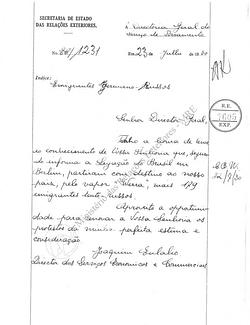 SECRETARIA DE ESTADO
DAS RELAÇÕES EXTERIORES.
Á Directoria Geral do
Serviço de Povoamento
No. /1231
Em, 23 de Julho de 19
Indice:
Emigrantes Germano-Russos
R. E.
7605
EXP.
Senhor Director Geral,
Tenho a honra de levar
ao conhecimento de Vossa Senhoria que, segun-
do informa a Legação do Brasil em
Berlim, partiram com destino ao nosso
paiz, pelo vapor " ", mais 179
emigrantes teuto-russos.
Aproveito a opportuni-
dade para renovar a Vossa Senhoria os
protestos da minha perfeita estima e
consideração
Joaquim Eulalio
Director dos Serviços Economicos e Commerciaes